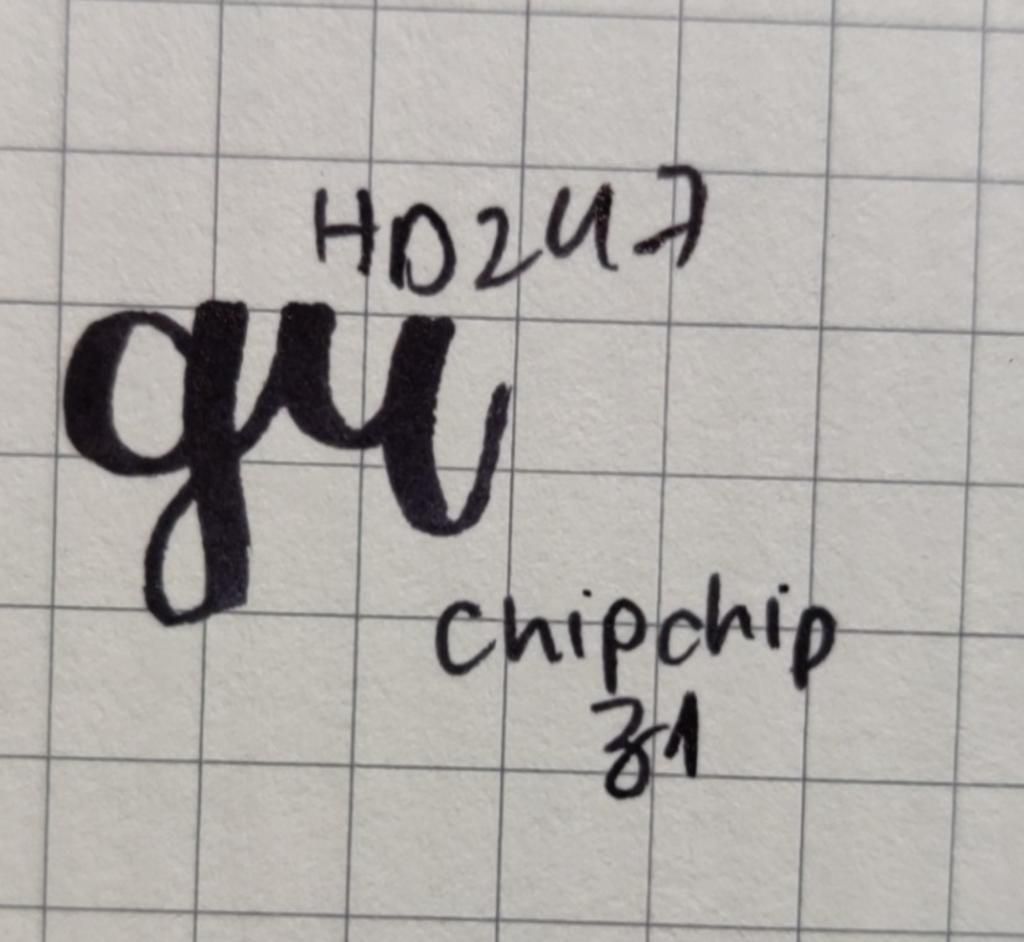 HD247
gu
chipchip
81